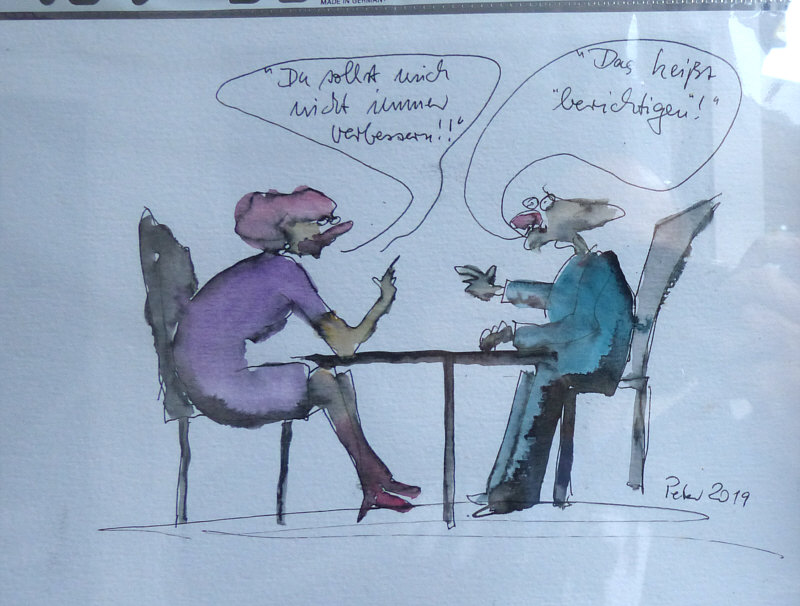 MADE IN GERMANY
"Du sollst mich
nicht immer
verbessern!!"
"Das heißt
"berichtigen"!"
Peter 2019